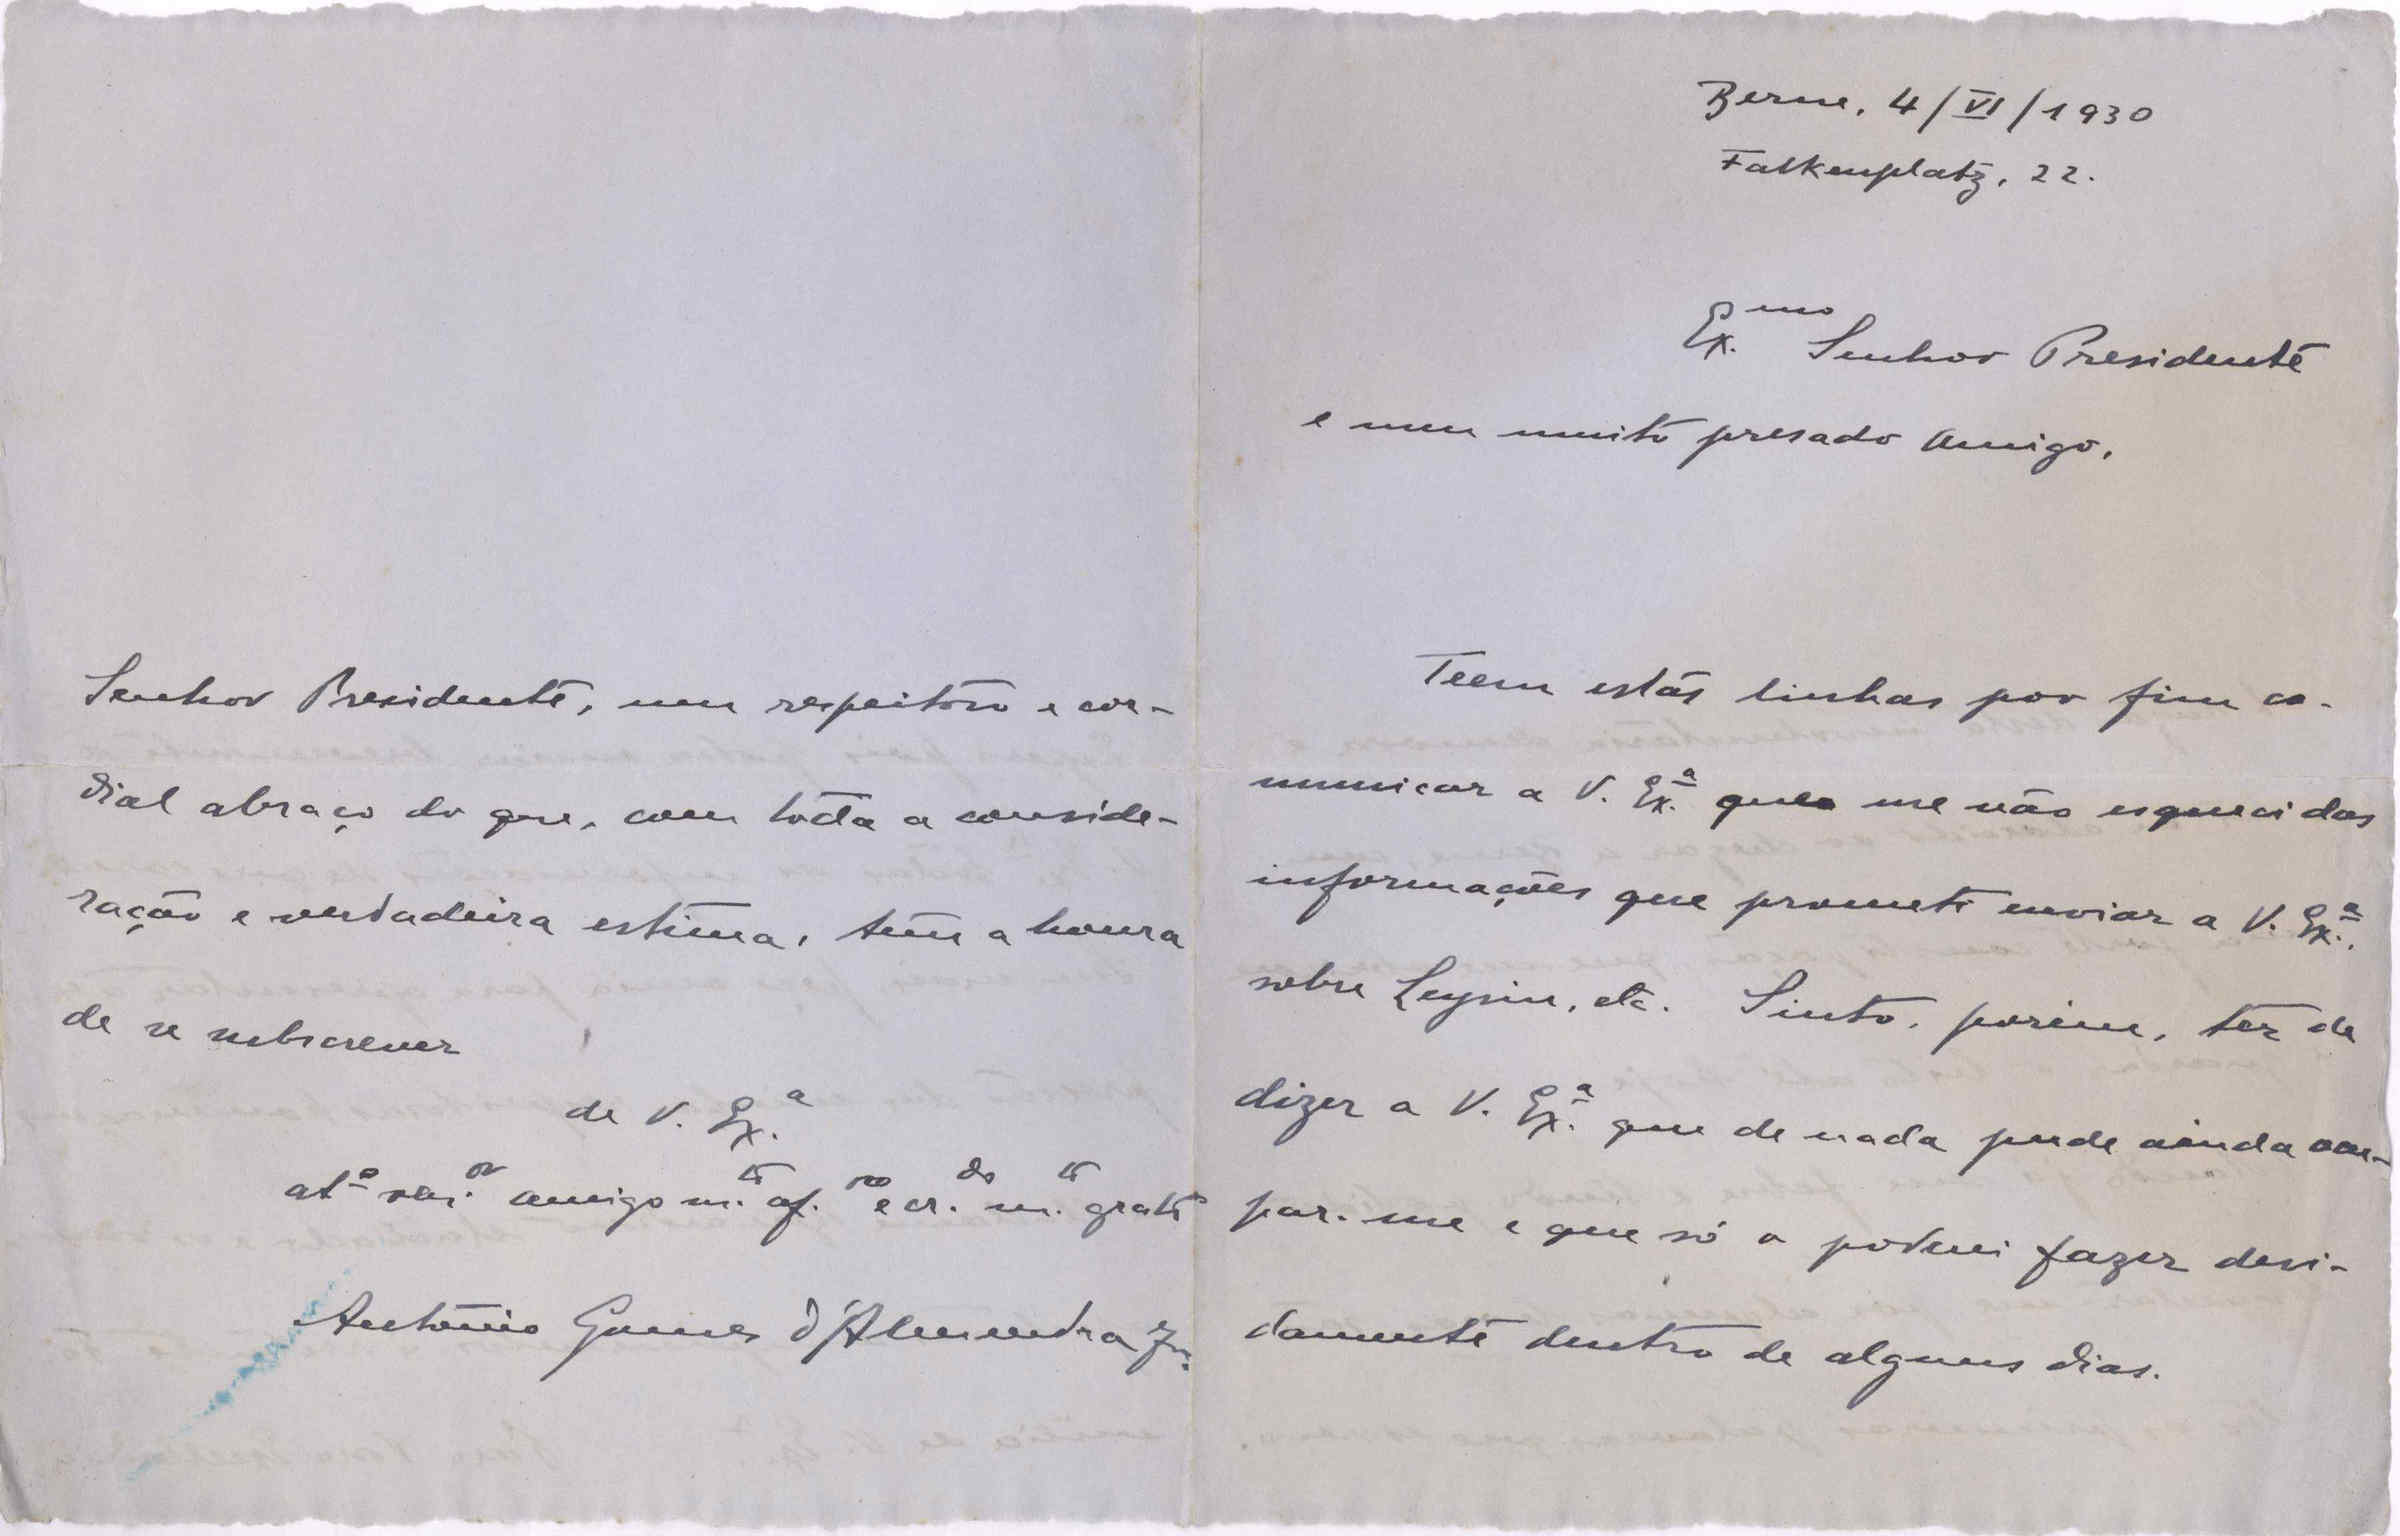 Berne, 4/VI/1930
Falkenplatz, 22.
Ex.mo Senhor Presidente
e meu muito presado Amigo,
Teem estas linhas por fim co-
municar a V. Ex.ª que me não esqueci das
informações que prometi enviar a V. Ex.ª,
sobre Leysin, etc. Sinto, porém, ter de
dizer a V. Ex.ª que de nada pude ainda ocu-
par-me e que só o poderei fazer devi-
damente dentro de alguns dias.
Senhor Presidente, um respeitoso e cor-
dial abraço do que, com toda a conside-
ração e verdadeira estima, tem a honra
de se subscrever
de V. Ex.ª
at.º ven.or amigo m.to af.mo e cr.do m.to grato
António Gomes d'Almendra Jr.